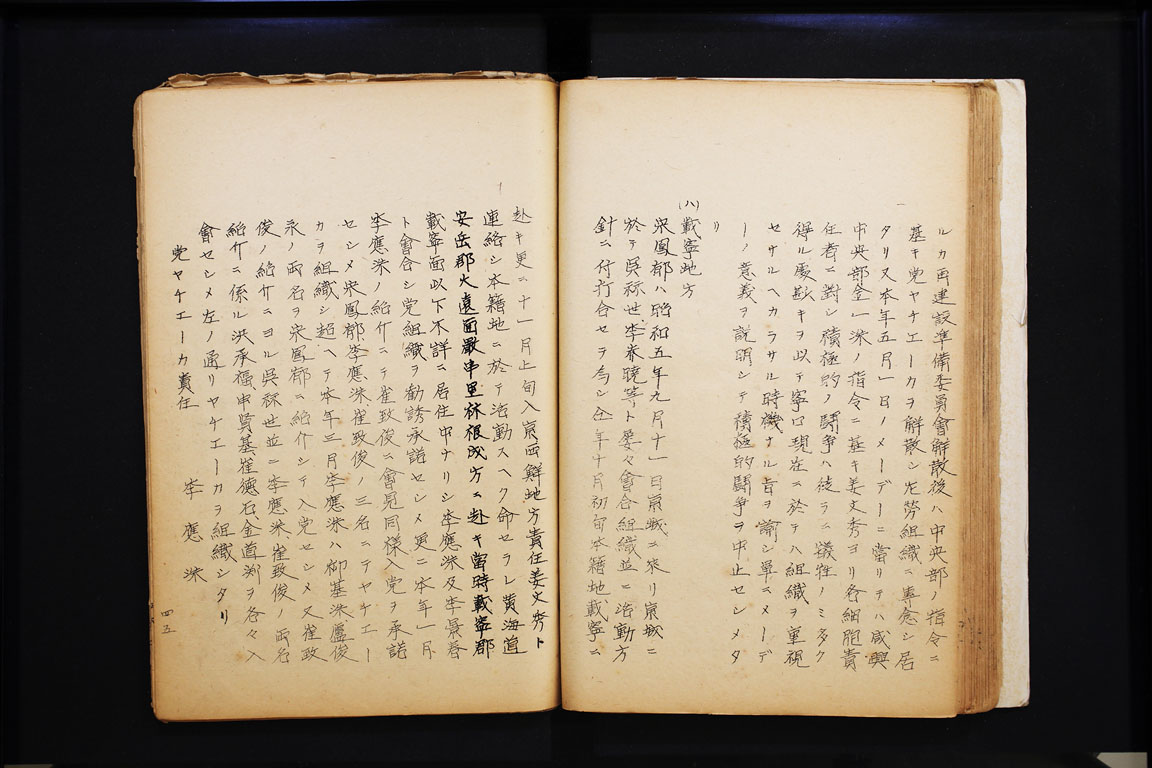 ルカ再建設準備委員會解散後ハ中央部ノ指令ニ
基キ党ヤチエーカヲ解散シ左労組織ニ專念シ居
タリ又本年五月一日ノメーデーニ當リテハ咸興
中央部金一洙ノ指令ニ基キ姜文秀ヨリ各細胞責
任者ニ對シ積極的ノ鬪争ハ徒ラニ犠牲ノミ多ク
得ル處尠キヲ以テ寧ロ現在ニ於テハ組織ヲ重視
セサルヘカラサル時機ナル旨ヲ諭シ單ニメーデ
ーノ意義ヲ説明シテ積極的鬪争ヲ中止セシメタ
リ
(八)載寧地方
宋鳳郁ハ昭和五年九月十一日京城ニ來リ京城ニ
於テ呉祘世李春曉等ト屡々會合組織並ニ活動方
針ニ付打合セヲ為シ仝年十月初旬本籍地載寧ニ
赴キ更ニ十一月上旬入京西鮮地方責任姜文秀ト
連絡シ本籍地ニ於テ活動スヘク命セラレ黄海道
安岳郡大遠面嚴串里林根成方ニ赴キ當時載寧郡
載寧面以下不詳ニ居住中ナリシ李應洙及李景春
ト會合シ党組織ヲ勧誘承諾セシメ更ニ本年一月
李應洙ノ紹介ニテ崔致俊ニ會見同様入党ヲ承諾
セシメ宋鳳郁李應洙崔致俊ノ三名ニテヤチエー
カヲ組織シ超ヘテ本年三月李應洙ハ柳基洙盧俊
永ノ両名ヲ宋鳳郁ニ紹介シテ入党セシメ又崔致
俊ノ紹介ニヨル呉祘世並ニ李應洙崔致俊ノ両名
紹介ニ係ル洪承福申賢基崔德石金道渕ヲ各々入
會セシメ左ノ通リヤチエーカヲ組織シタリ
党ヤチエーカ責任 李應洙
四五